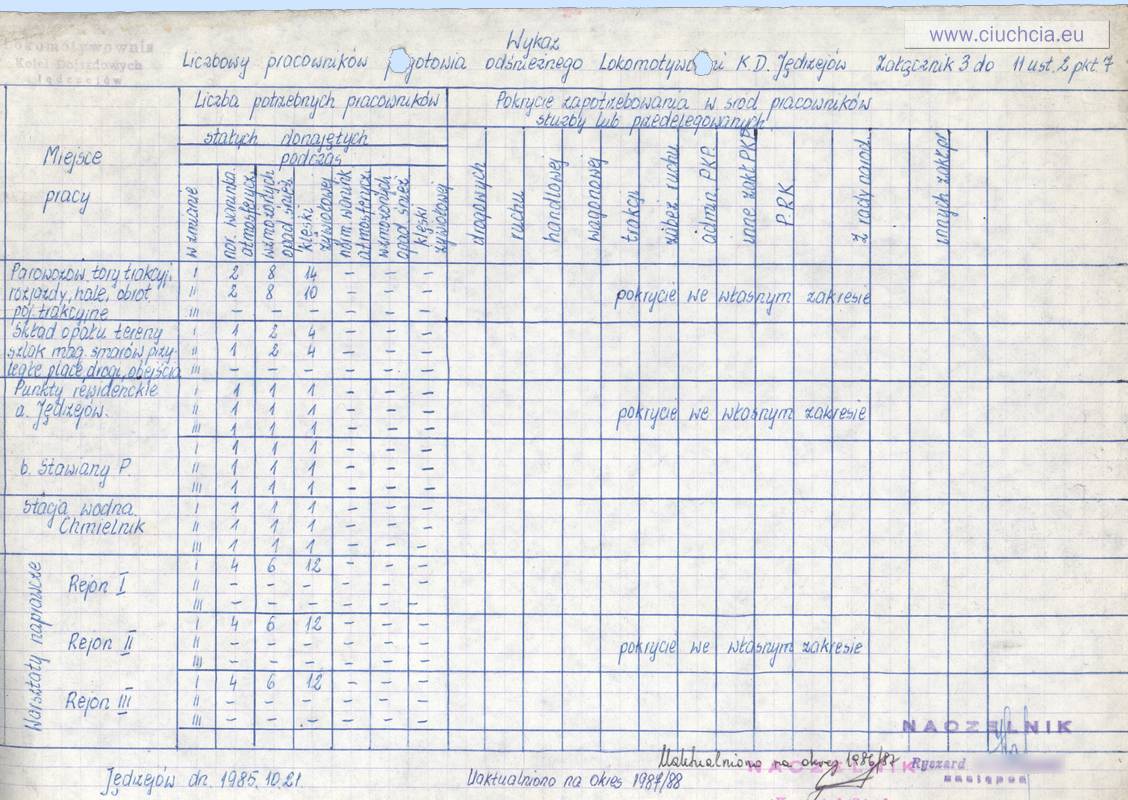 www.ciuchcia.eu
Lokomotywownia
Kolei Dojazdowych
Jędrzejów
Wykaz
Liczbowy pracowników pogotowia odśnieżnego Lokomotywowni K.D. Jędrzejów Załącznik 3 do 11 ust. 2 pkt. 7
Miejsce
pracy
Liczba potrzebnych pracowników
stałych donajętych
podczas
w zmianie
nor. warunka.
atmosferycz.
wzmożonych
opad śnież.
klęski
żywiołowej
norm. warunk
atmosferycz.
wzmożonych
opad śnież
klęski
żywiołowej
Pokrycie zapotrzebowania w śród pracowników
służby lub przedelegowanych
drogowych
ruchu
handlowej
wagonowej
trakcji
zabez ruchu
admin. PKP.
inne zakł PKP
P.R.K
z rady narod.
innych zakł.pr
Parowozow. tory trakcyj. I 2 8 14 - - -
rozjazdy, hale, obrot. II 2 8 10 - - - pokrycie we własnym zakresie
poj. trakcyjne III - - - - - -
Skład opału tereny I 1 2 4
szlak mag. smarów przy- II 1 2 4 - - -
ległe place, drogi, obejścia III - - - - - -
Punkty rewidenckie I 1 1 1 - - -
a. Jędrzejów. II 1 1 1 - - - pokrycie we własnym zakresie
III 1 1 1 - - -
I 1 1 1 - - -
b. Stawiany P. II 1 1 1 - - -
III 1 1 1 - - -
Stacja wodna I 1 1 1 - - -
Chmielnik II 1 1 1 - - -
III 1 1 1 - - -
Warsztaty naprawcze
I 4 6 12 - - -
Rejon I II - - - - - -
III - - - - - -
I 4 6 12 - - -
Rejon II II - - - - - - pokrycie we własnym zakresie
III - - - - - -
I 4 6 12 - - -
Rejon III II - - - - - -
III - - - - - -
NACZELNIK
Uaktualniono na okres 1986/87
NACZELNIK
Ryszard
zastępca
Jędrzejów dn. 1985.10.21.
Uaktualniono na okres 1987/88